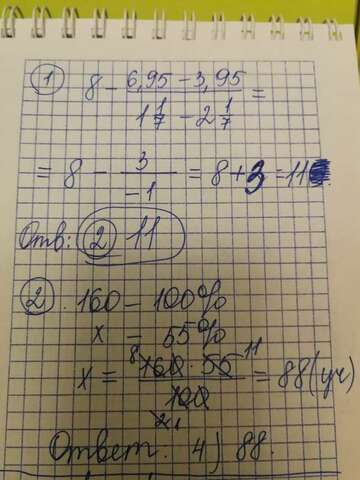 1 8 - (6,95 - 3,95)/(1 1/7 - 2 1/7) =
= 8 - 3/(-1) = 8+3 = 11
Отв: 2 11
2. 160 - 100%
x - 55%
x = 8 160 · 55 11 / 100 2 1 = 88 (уч)
Ответ. 4) 88.